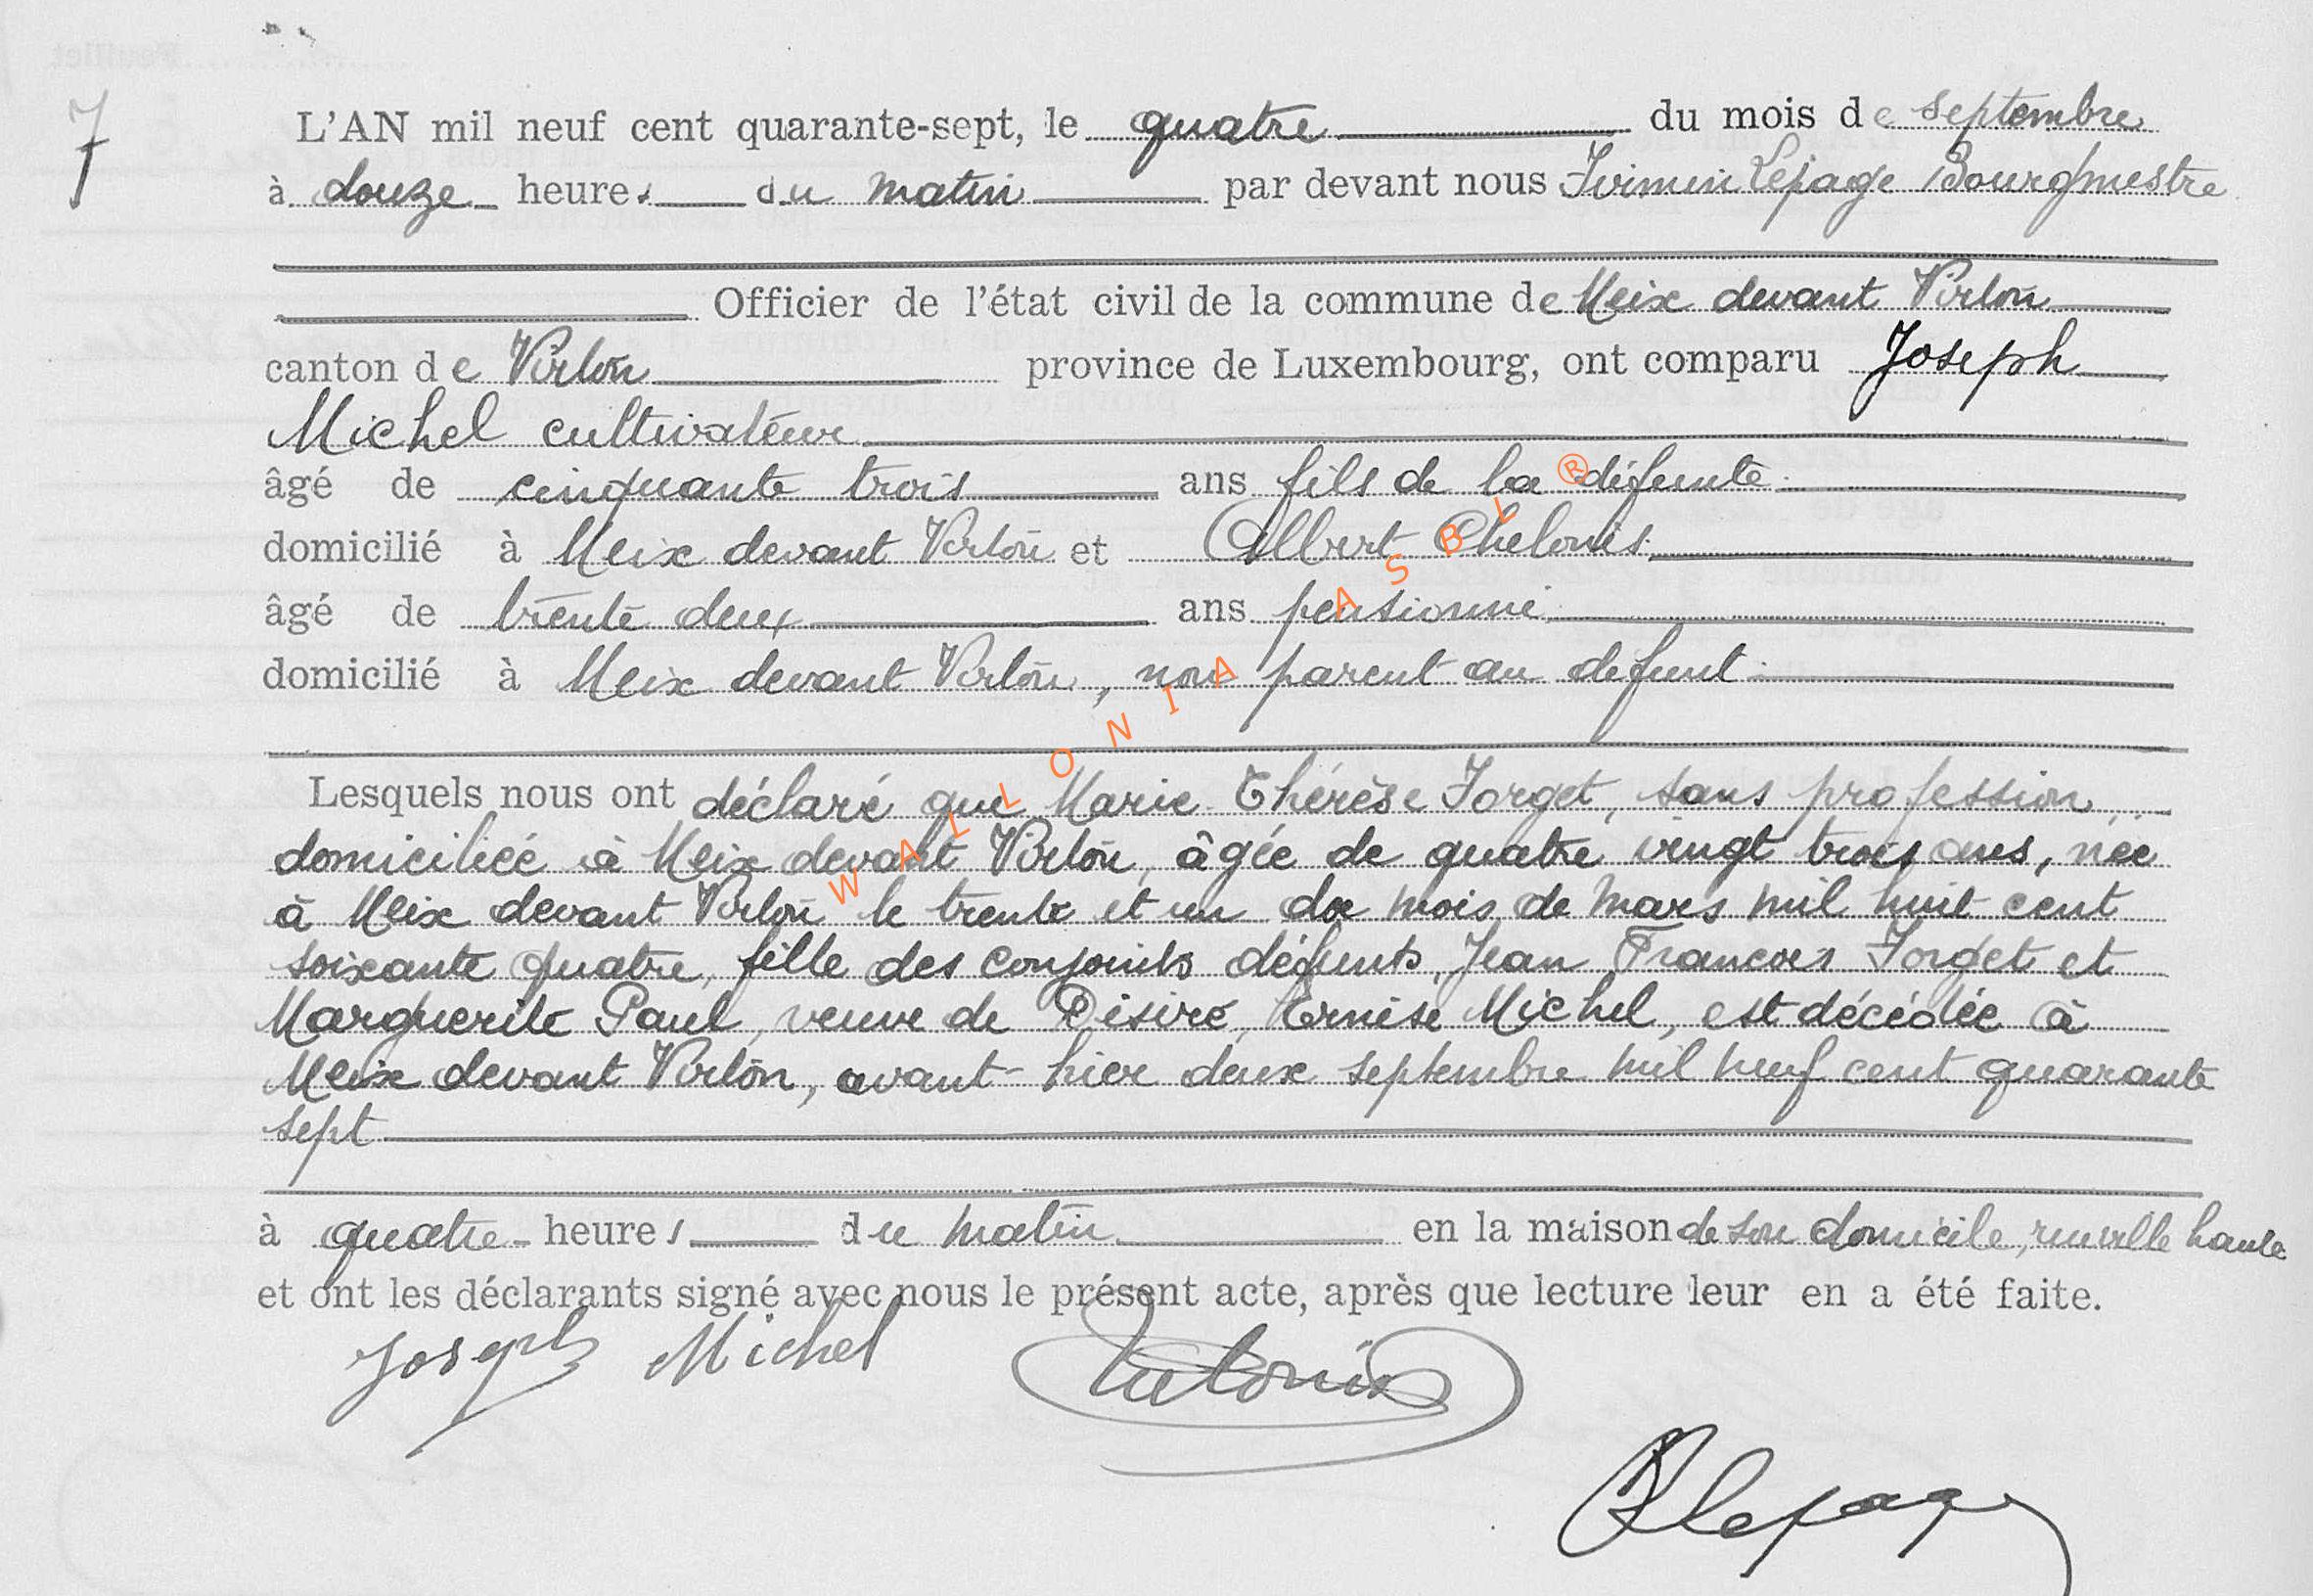 7
L'AN mil neuf cent quarante-sept, le quatre du mois de septembre
à douze heures du matin par devant nous Firmin Lepage Bourgmestre
Officier de l'état civil de la commune de Meix devant Virton
canton de Virton province de Luxembourg, ont comparu Joseph
Michel cultivateur
âgé de cinquante trois ans fils de la défunte
domicilié à Meix devant Virton et Albert
âgé de trente deux ans pensionné
domicilié à Meix devant Virton, non parent au defunt
Lesquels nous ont déclaré que Marie Thérèse Forget, sans profession,
domiciliée à Meix devant Virton, âgée de quatre vingt trois ans, née
à Meix devant Virton le trente et un du mois de mars mil huit cent
soixante quatre, fille des conjoints défunts, Jean François Forget et
Marguerite Paul, veuve de Désiré, Ernèse Michel, est décédée à
Meix devant Virton, avant-hier deux septembre mil neuf cent quarante
sept
à quatre heures du matin en la maison de son domicile, rue ville haute
et ont les déclarants signé avec nous le présent acte, après que lecture leur en a été faite.
Joseph Michel
Lepage
WALLONIA ASBL ®